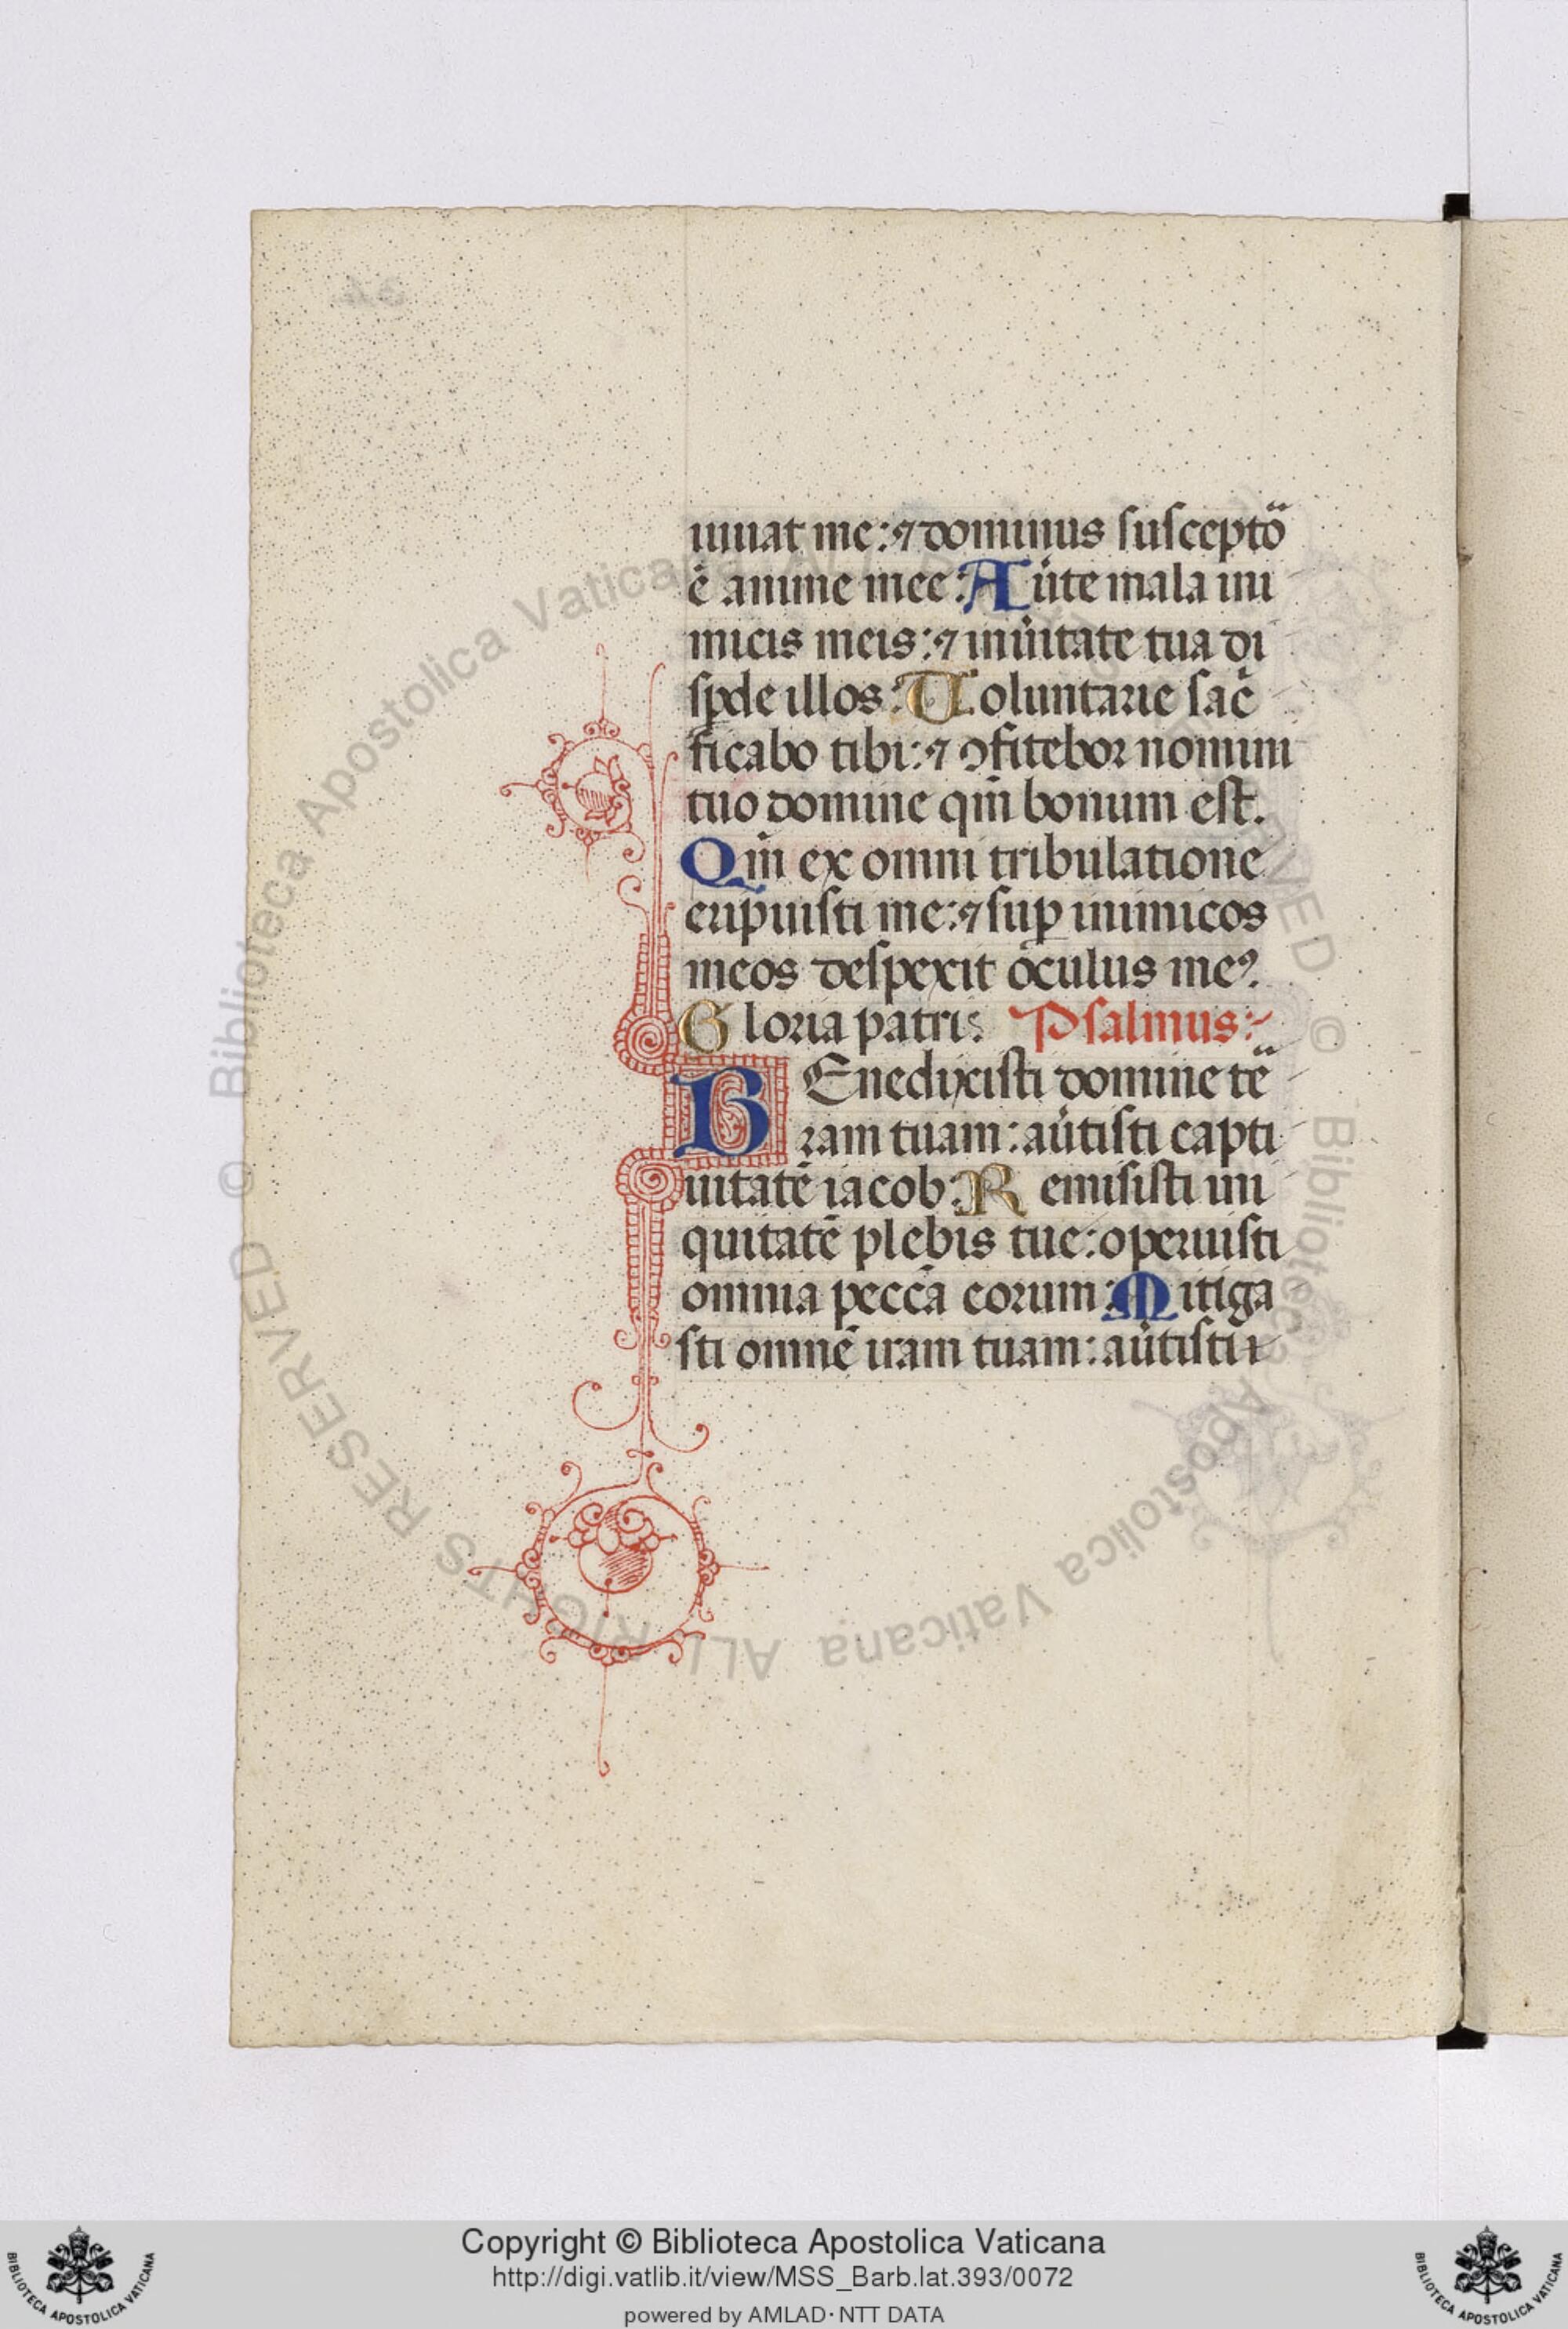 iuuat me: ⁊ dominus susceptõ
ē anime mee: Auͥte mala ini
micis meis: ⁊ in uͥitate tua di
sꝑde illos: Voluntarie sac̄
ficabo tibi: ⁊ ꝯfitebor nomini
tuo domine qm̄ bonum est.
Qm̄ ex omni tribulatione
eripuisti me: ⁊ suꝑ inimicos
meos despexit oculus meꝰ.
Gloria patri: Psalmus:
BEnedixisti domine teᷓ
ram tuam: auͥtisti capti
uitatē iacob: Remisisti ini
quitatē plebis tue: operuisti
omnia pecc̄a eorum: Mitiga
sti omnē iram tuam: auͥtisti
Copyright © Biblioteca Apostolica Vaticana
http://digi.vatlib.it/view/MSS_Barb.lat.393/0072
powered by AMLAD·NTT DATA
BIBLIOTECA APOSTOLICA VATICANA
BIBLIOTECA APOSTOLICA VATICANA
© Biblioteca Apostolica Vaticana ALL RIGHTS RESERVED © Biblioteca Apostolica Vaticana ALL RIGHTS RESERVED